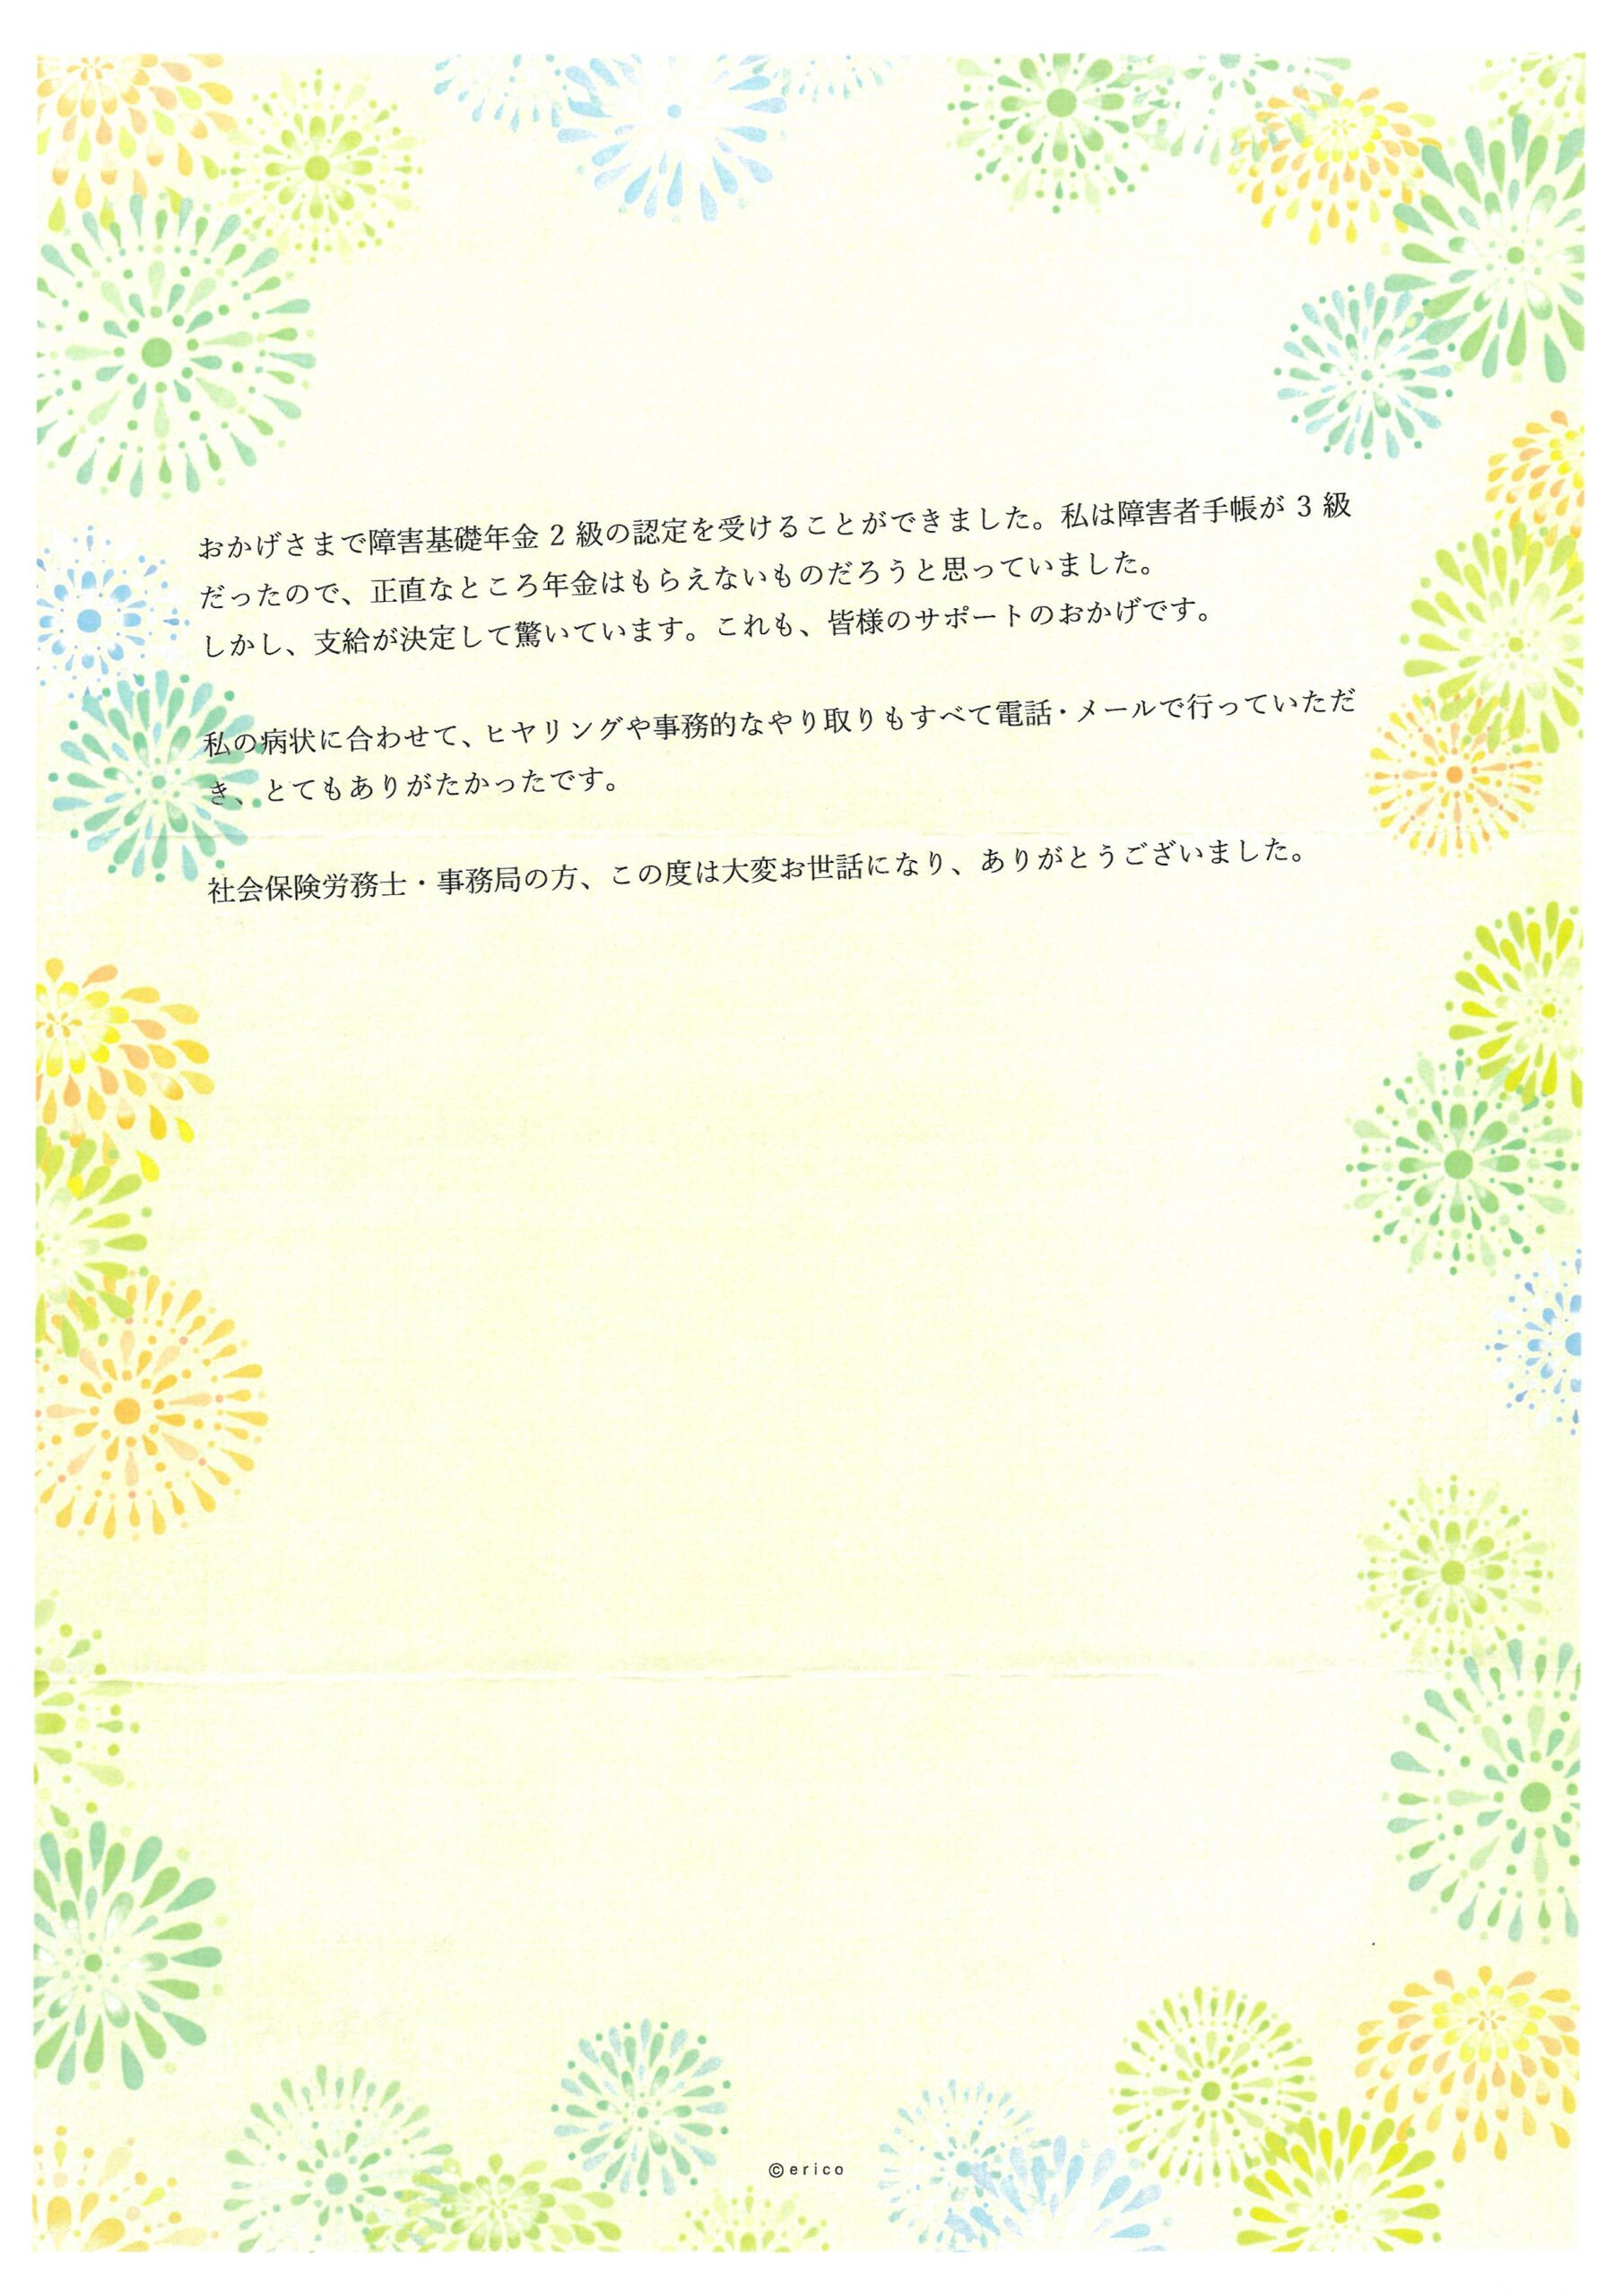 おかげさまで障害基礎年金 2 級の認定を受けることができました。私は障害者手帳が 3 級
だったので、正直なところ年金はもらえないものだろうと思っていました。
しかし、支給が決定して驚いています。これも、皆様のサポートのおかげです。
私の病状に合わせて、ヒヤリングや事務的なやり取りもすべて電話・メールで行っていただ
き、とてもありがたかったです。
社会保険労務士・事務局の方、この度は大変お世話になり、ありがとうございました。
©erico